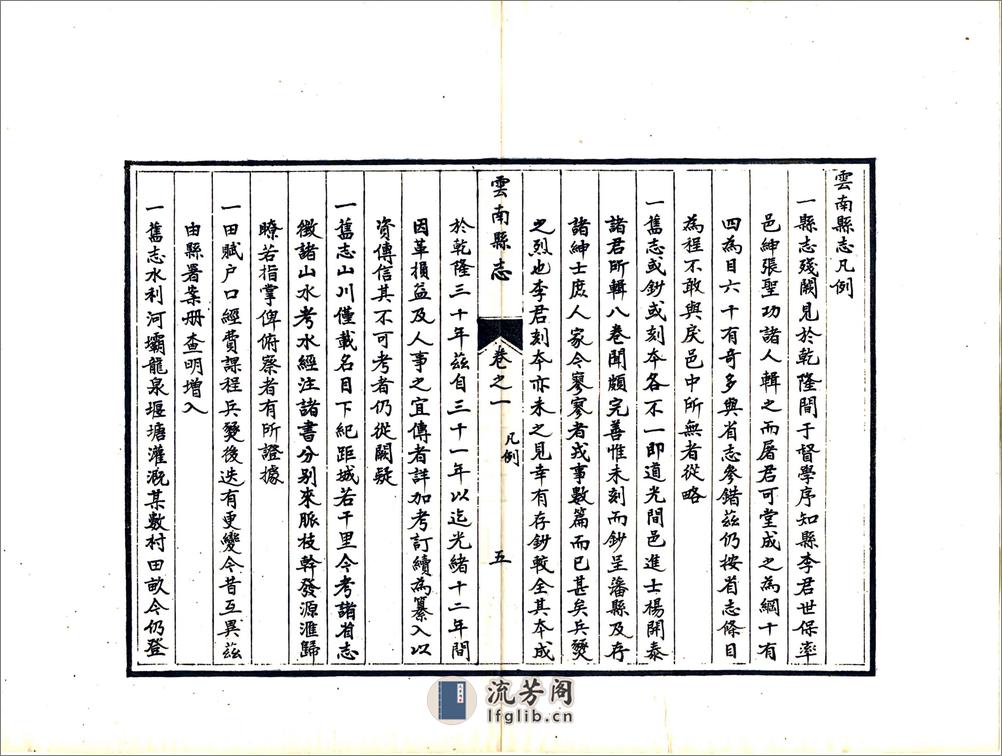 雲南縣志凡例
一縣志殘闕見於乾隆間于督學序知縣李君世保率
邑紳張聖功諸人輯之而屠君可堂成之為綱十有
四為目六十有奇多與省志參錯茲仍按省志條目
為程不敢與戾邑中所無者從略
一舊志或鈔或刻本各不一即道光間邑進士楊開泰
諸君所輯八卷聞頗完善惟未刻而鈔呈藩縣及存
諸紳士庶人家今寥寥者戎事數篇而已甚矣兵燹
之烈也李君刻本亦未之見幸有存鈔較全其本成
雲南縣志
卷之一
凡例
五
於乾隆三十年茲自三十一年以迄光緒十二年間
因革損益及人事之宜傳者詳加考訂續為纂入以
資傳信其不可考者仍從闕疑
一舊志山川僅載名目下紀距城若干里今考諸省志
徵諸山水考水經注諸書分別來脈枝幹發源滙歸
瞭若指掌俾俯察者有所證據
一田賦户口經費課程兵燹後迭有更變今昔互異茲
由縣署案册查明增入
一舊志水利河壩龍泉堰塘灌溉某數村田畝今仍登
流芳阁
lfglib.cn